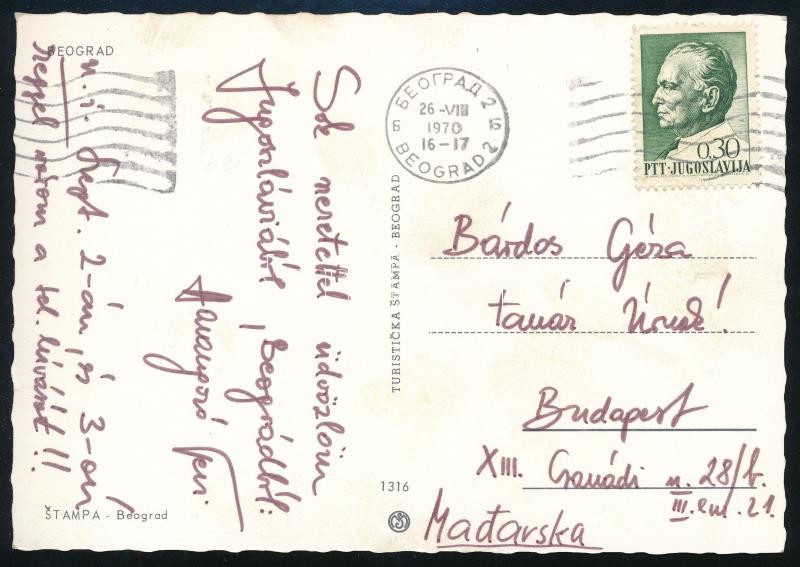 BEOGRAD
Sok szeretettel üdvözlöm
Jugoszláviából, Beográdból:
Jenő
u. i. Szept. 2-án, és 3-án
reggel várom a tel. hívást!!
ŠTAMPA - Beograd
TURISTIČKA ŠTAMPA - BEOGRAD
1316
БЕОГРАД 2
Б 26-VIII Б
1970
16-17
BEOGRAD 2
0,30
PTT·JUGOSLAVIJA
Bárdos Géza
tanár Úrnak!
Budapest
XIII. Csanádi u. 28/b.
III. em. 21.
Mađarska